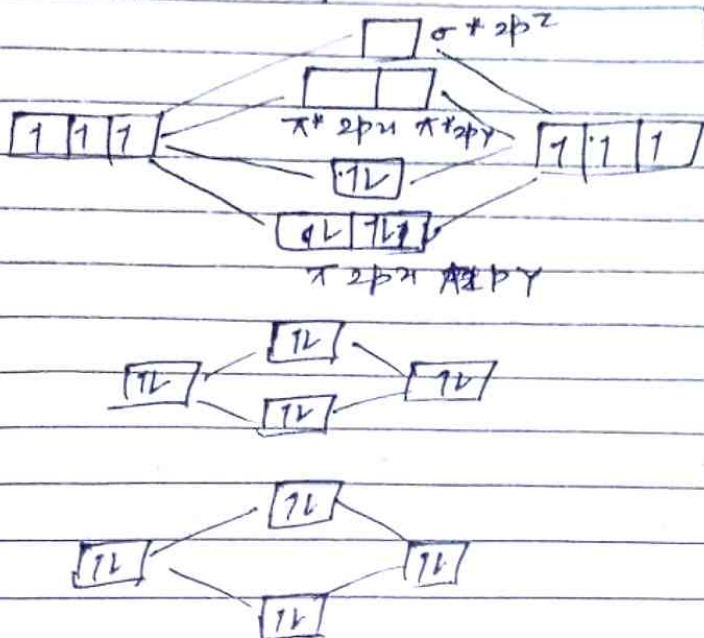 σ* 2pz
π* 2px π*2py
1 1 1 1 1 1
1L
1L 1L
π 2px π2py
1L
1L 1L
1L
1L
1L 1L
1L